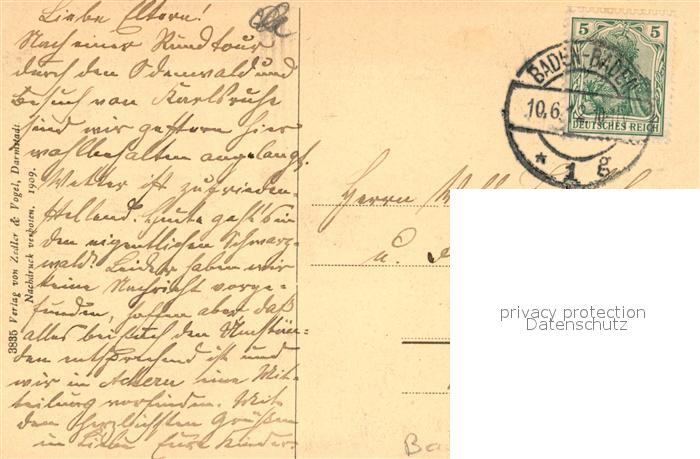 Liebe Eltern!
Nach einer Rundtour
durch den Odenwald und
Besuch von Karlsruhe
sind wir gestern hier
wohlbehalten angelangt.
Wetter ist zufrieden-
stellend. Heute geht's in
den eigentlichen Schwarz-
wald. Leider haben wir
keine Nachricht vorge-
funden, hoffen aber daß
alles bei Euch den Umstän-
den entsprechend ist und
wir in Achern eine Mit-
teilung vorfinden. Mit
den herzlichsten Grüßen
in Liebe Eure Kinder.
3835 Verlag von Zedler & Vogel, Darmstadt.
Nachdruck verboten. 1909.
5 5
DEUTSCHES REICH
BADEN-BADEN
10.6.
* 1 g
Herrn
u.
privacy protection
Datenschutz